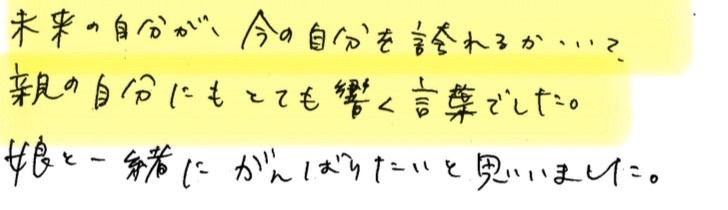 未来の自分が、今の自分を誇れるか・・・?、
親の自分にもとても響く言葉でした。
娘と一緒にがんばりたいと思いいました。